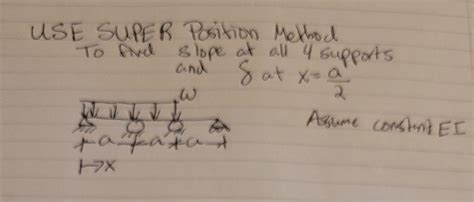 USE SUPER Position Method
To find slope at all 4 supports
and δ at x = a/2
ω
Assume constant EI
a a a
x